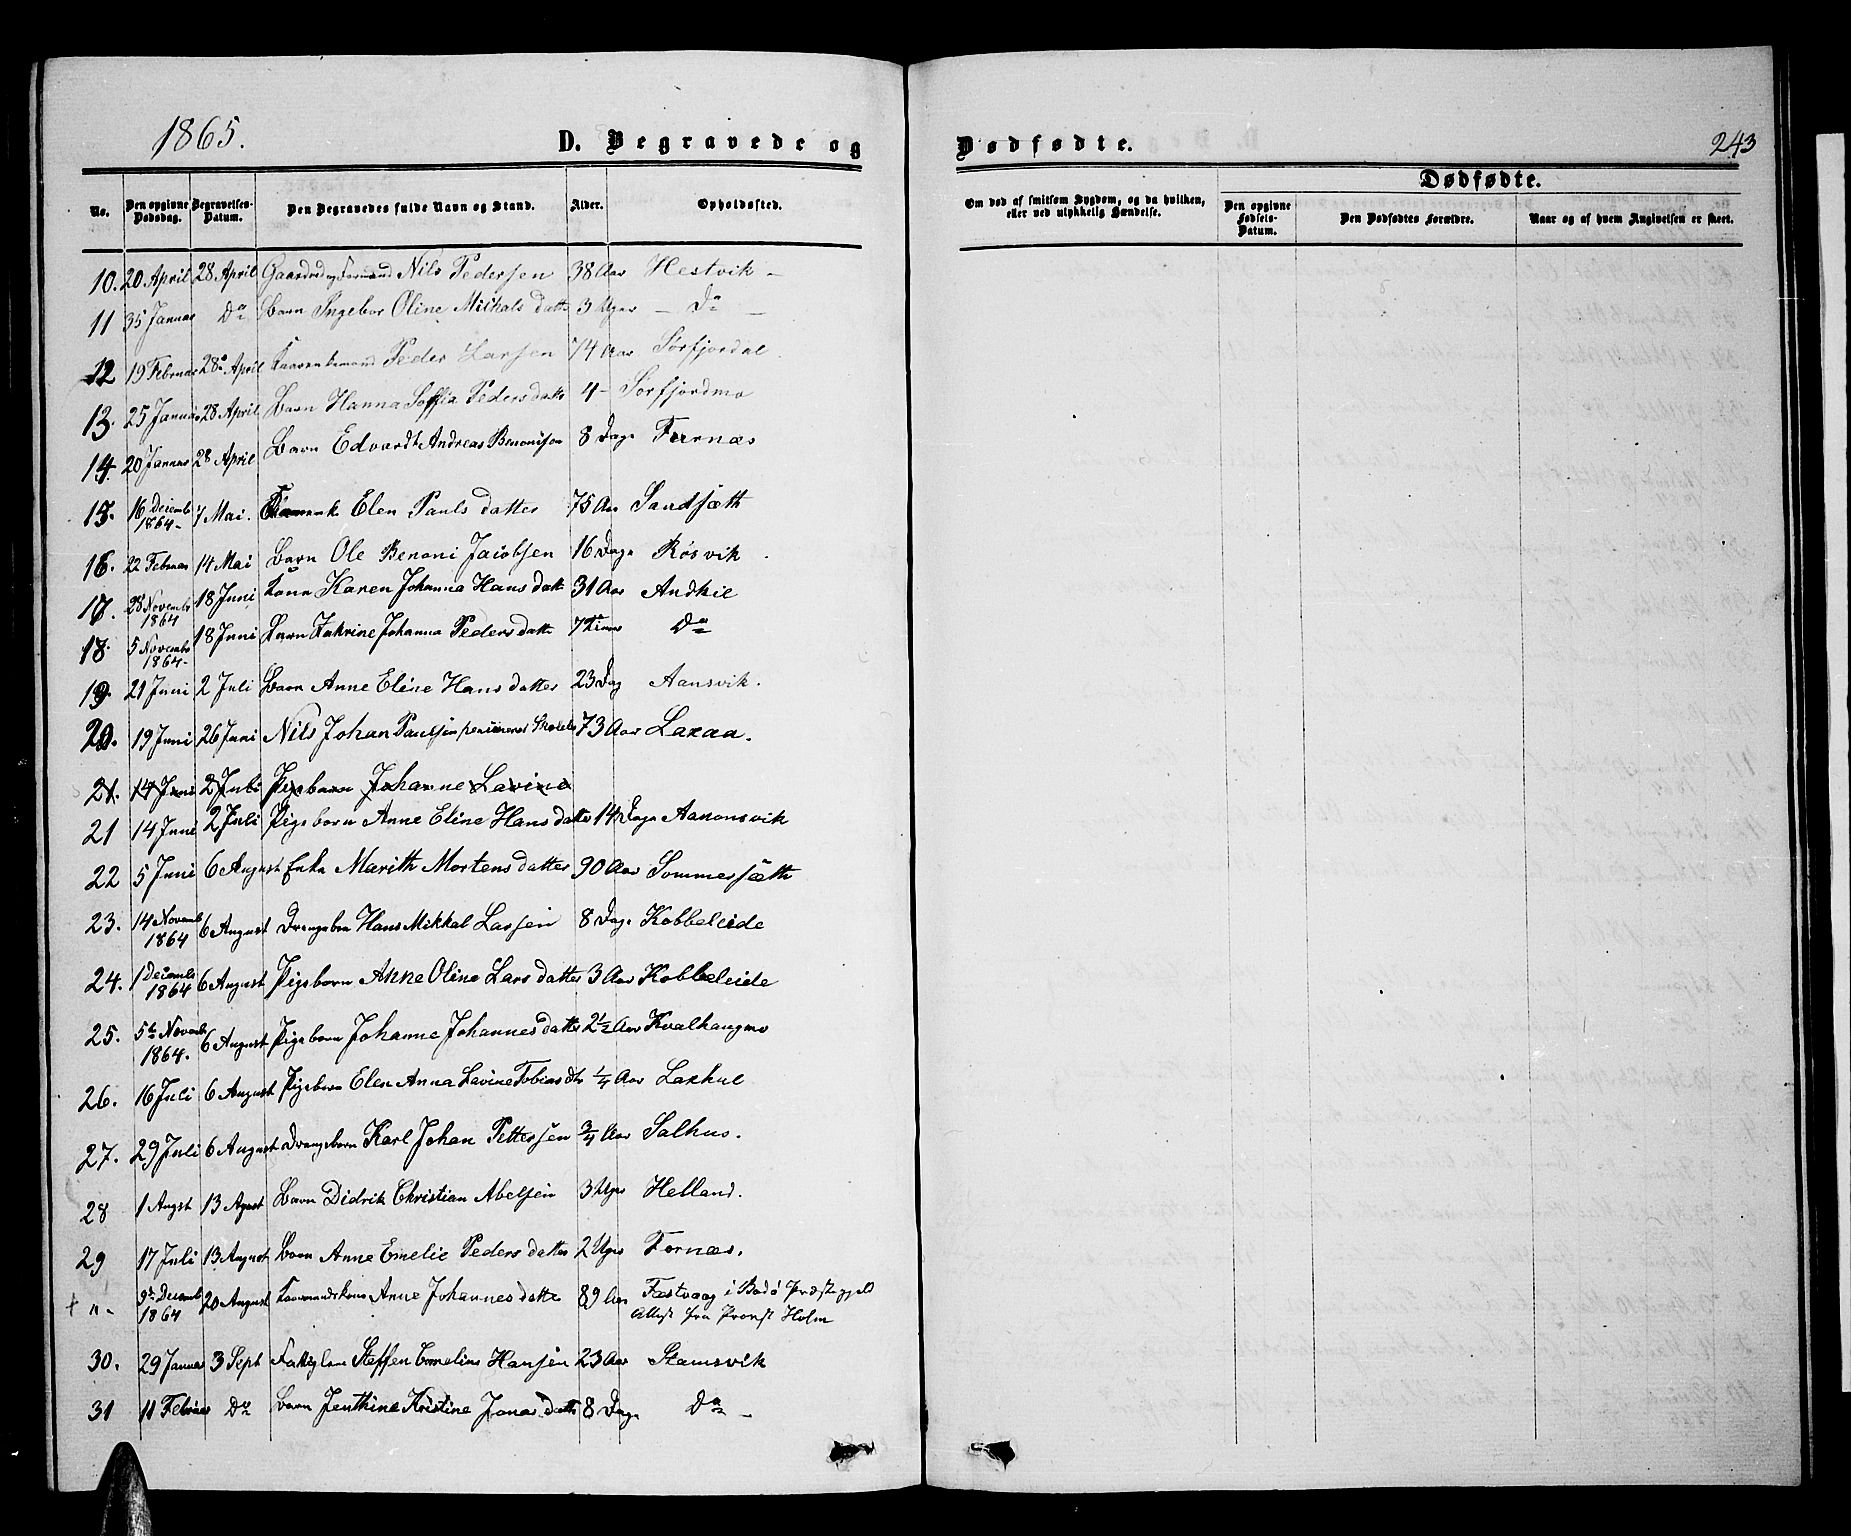 1865.
D. Begravede og
Dødfødte.
243
No.
Den opgivne Dødsdag.
Begravelses-Datum.
Den Begravedes fulde Navn og Stand.
Alder.
Opholdssted.
Om død af smitsom Sygdom, og da hvilken, eller ved ulykkelig Hændelse.
Dødfødte.
Den opgivne Fødsels-Datum.
Den Dødfødtes Forældre.
Naar og af hvem Angivelsen er skeet.
10. 20 April 28 April Nils Pedersen 38 Aar Hestvik -
11 35 Januar Do Barn Ingebor Oline Mickals datt 3 Uger - Do -
12 19 Februar 28 April Peder Larsen 74 Aar Sørfjordal.
13. 25 Januar 28 April Barn Hanna Soffia Pedersdatt 4 - Sørfjordmo
14. 20 Januar 28 April Barn Edvardt Andreas Benonisen 8 Dage Fornæs
15. 16 Decemb 1864- 7 Mai. Elen Pauls datter 75 Aar Sandsæth
16. 22 Februar 14 Mai Barn Ole Benoni Jacobsen 16 Dage Røsvik
17. 28 Novembr 1864 18 Juni Kona Karen Johanna Hans datt 31 Aar Andkil
18. 5 Novembr 1864- 18 Juni Barn Johanna Peders datt 7 Timer Do
19. 21 Juni 2 Juli Barn Anne Eline Hans datter 23 Dag Aansvik.
20. 19 Juni 26 Juni Nils Johan Paulsen 73 Aar Laxaa.
21. 14 Juni 2 Juli Pigebarn Johanne Lavine
21 14 Juni 2 Juli Pigebarn Anne Eline Hans datter 14 Dage Aanonsvik
22 5 Juni 6 August Enke Marith Mortens datter 90 Aar Sommersæth
23. 14 Novemb 1864 6 August Drengebrn Hans Mikkal Larsen 8 Dage Kobbeleide
24. 1 Decemb 1864 6 August Pigebarn Anne Oline Lars datter 3 Aar Kobbeleide
25. 5te Novemb 1864. 6 August Pigebarn Johanne Johannes datter 2½ Aar Kvalhaugmo
26. 16 Juli 6 August Pigebarn Elen Anna Lavine Tobias dtr ¼ Aar Laxhul
27. 29 Juli 6 August Drengebarn Karl Johan Pettersen ¾ Aar Salhus.
28 1 Augst 13 Agust Barn Didrik Christian Abelsen 3 Uger Helland.
29 17 Juli 13 August Barn Anne Emelie Peders datter 2 Uger Fornæs.
+ "- 9de Decemb 1864 20 August Kaarmandskone Anne Johannes datter 89 Aar Fæstvaag i Bodø Præstegjeld
Attest fra Provst Holm
30. 29 Januar 3 Sept Fattiglem Steffen Cornelius Hansen 23 Aar Stamsvik
31 11 Februar Do Barn Jenthine Kristine Jonas datter 8 Dage Do -